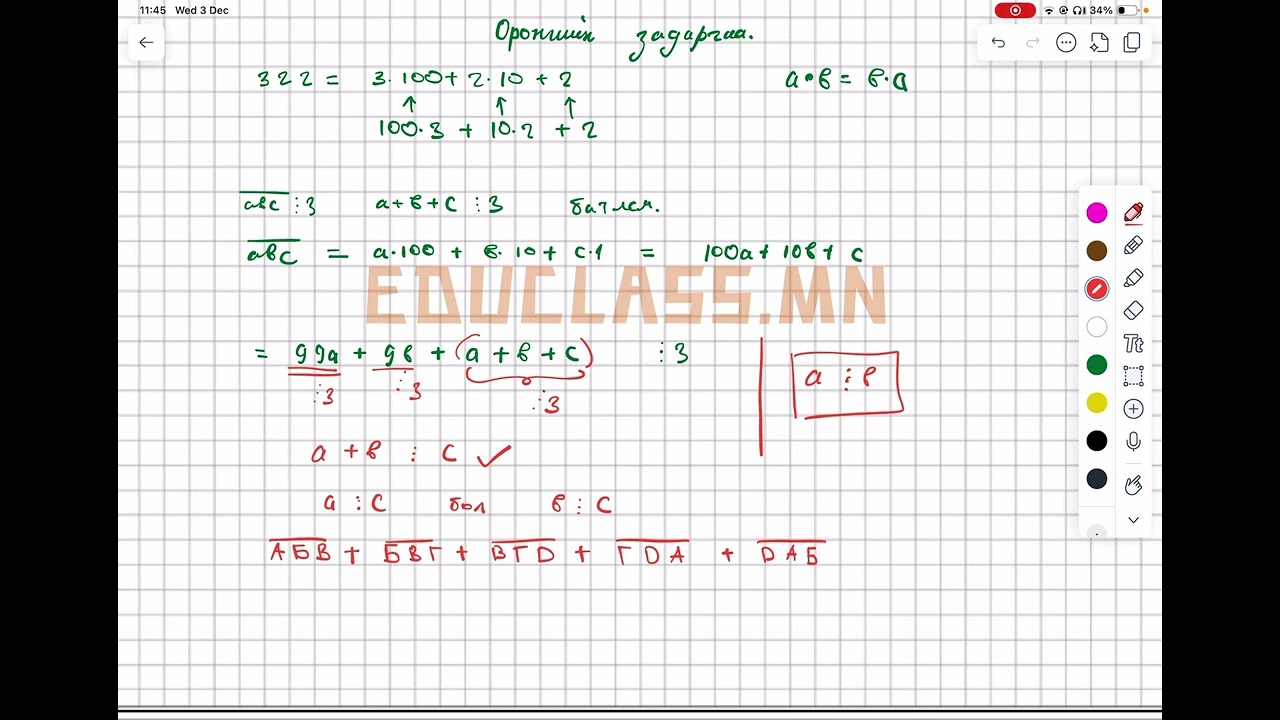 11:45 Wed 3 Dec 34%
Оронгийн задаргаа.
322 = 3·100 + 2·10 + 2
a·b = b·a
100·3 + 10·2 + 2
abc ⋮ 3 a+b+c ⋮ 3 батлах.
abc = a·100 + b·10 + c·1 = 100a + 10b + c
EDUCLASS.MN
= 99a + 9b + (a + b + c) ⋮ 3
⋮3 ⋮3 ⋮3
a ⋮ b
a + b ⋮ c ✓
a ⋮ c бол b ⋮ c
АБВ + БВГ + ВГD + ГDА + DАБ
Tt